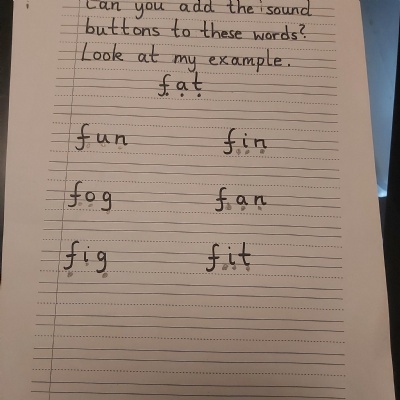 Can you add the sound
buttons to these words?
Look at my example.
fat
fun fin
fog fan
fig fit